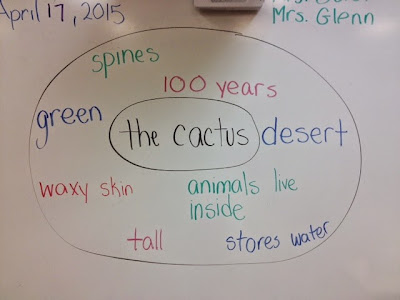 April 17, 2015
Mrs. Glenn
spines
100 years
green
the cactus
desert
waxy skin
animals live
inside
tall
stores water